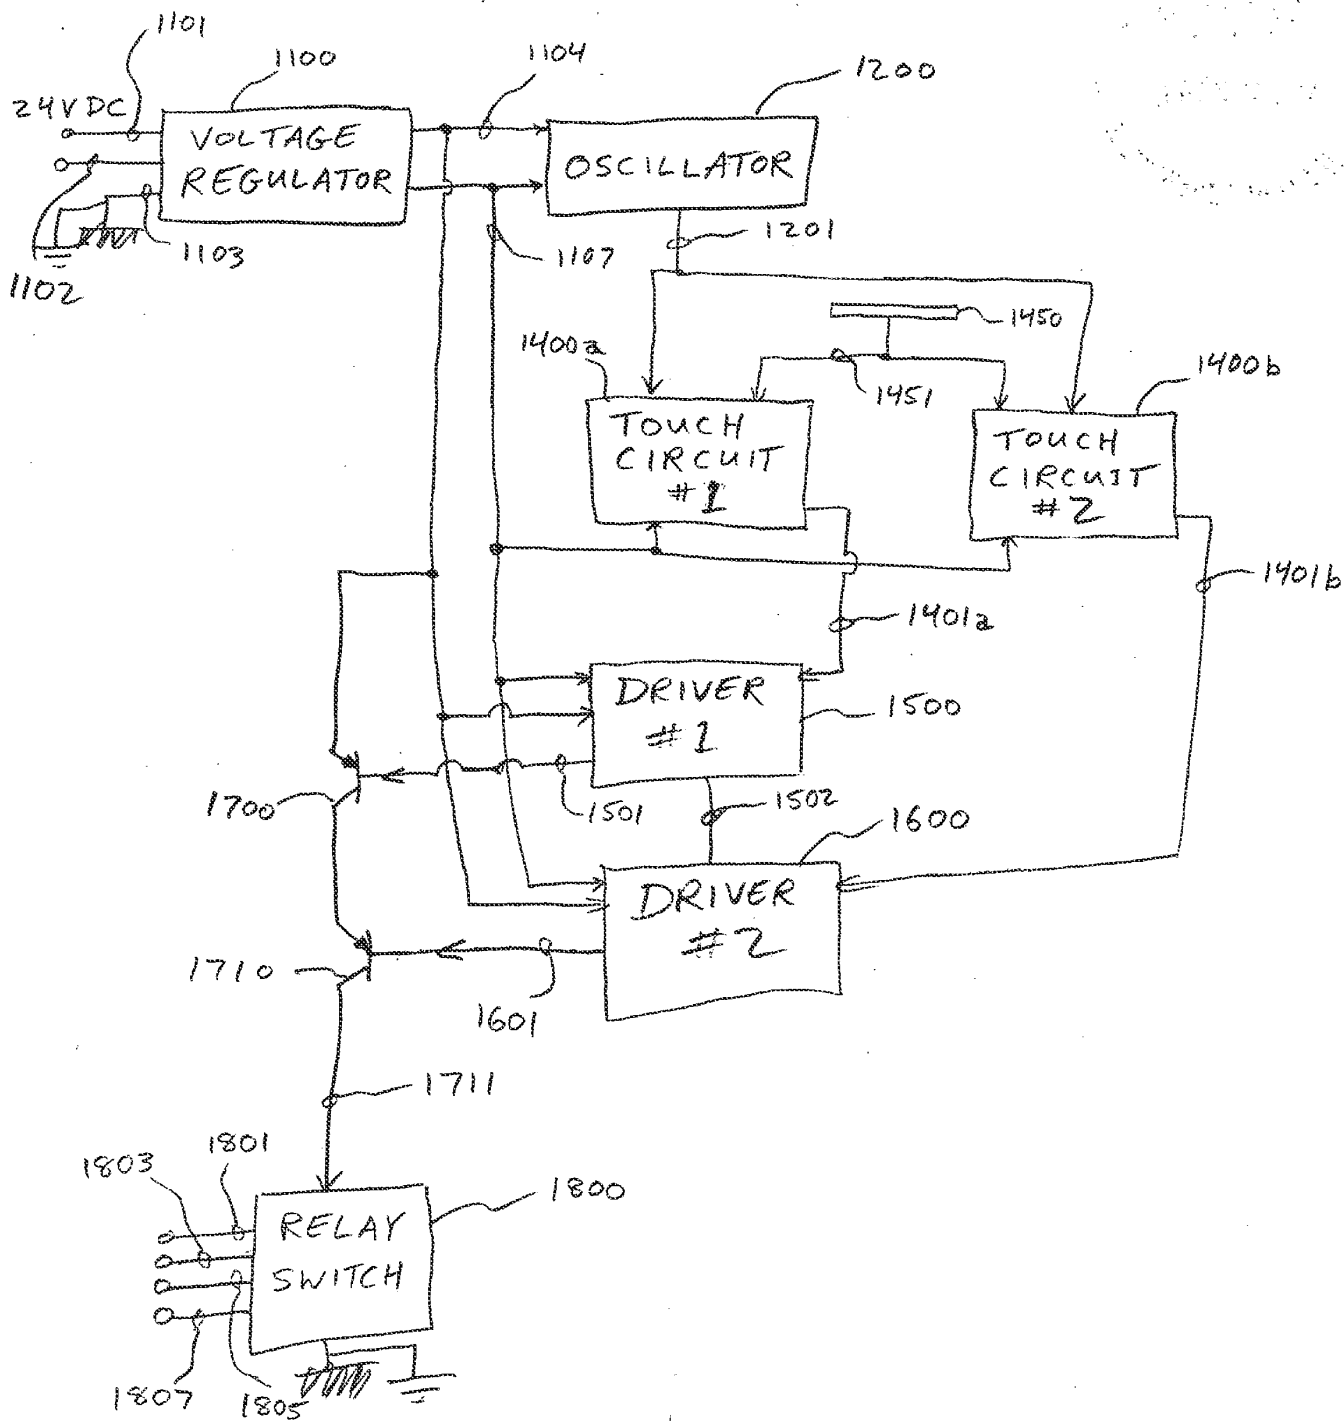 1101
1100
1104
1200
24VDC
VOLTAGE
REGULATOR
OSCILLATOR
1103
1102
1107
1201
1450
1400a
1451
1400b
TOUCH
CIRCUIT
#1
TOUCH
CIRCUIT
#2
1401b
1401a
DRIVER
#1
1500
1700
1501
1502
1600
DRIVER
#2
1710
1601
1711
1801
1803
1800
RELAY
SWITCH
1807
1805